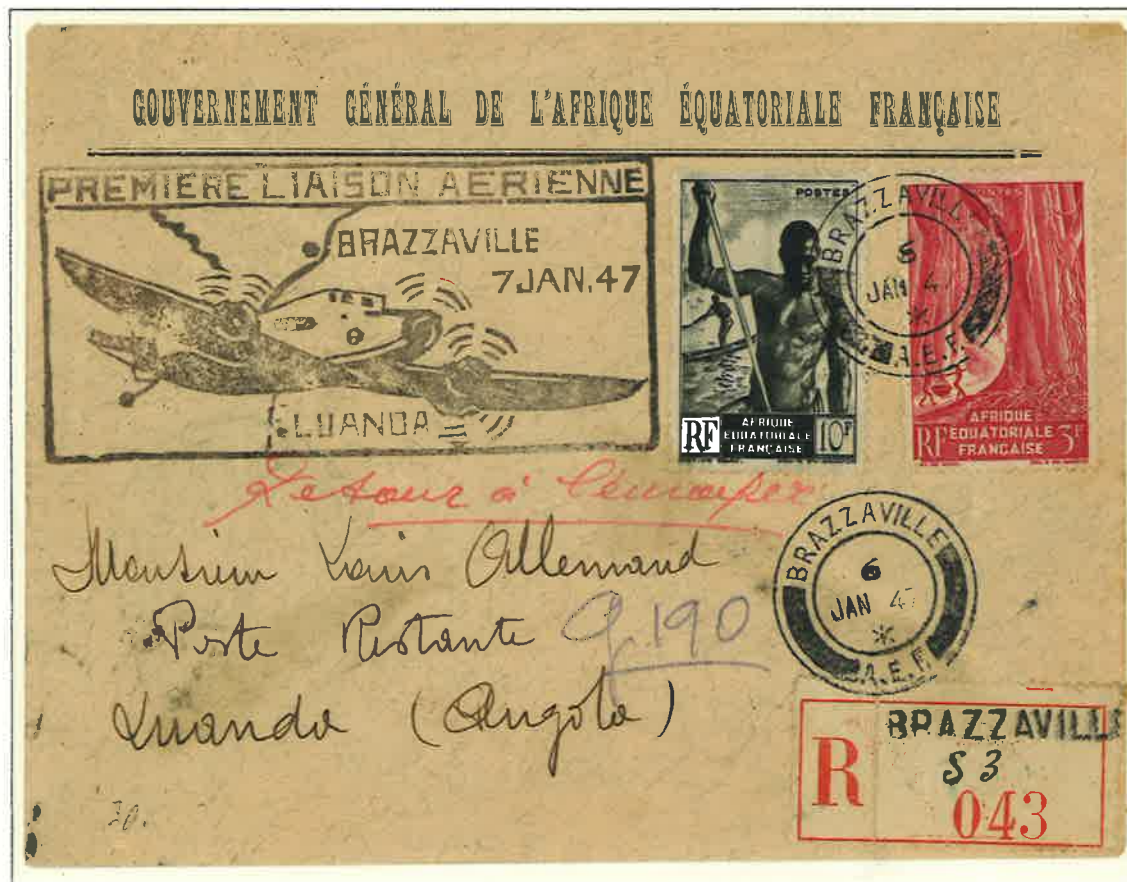 GOUVERNEMENT GÉNÉRAL DE L'AFRIQUE ÉQUATORIALE FRANÇAISE
PREMIERE LIAISON AERIENNE
BRAZZAVILLE
7 JAN. 47
LUANDA
POSTES
RF
AFRIQUE
EQUATORIALE
FRANÇAISE
10F
POSTES
RF
AFRIQUE
EQUATORIALE
FRANÇAISE
3F
BRAZZAVILL
6
JAN 4
A.E.F.
Retour à l'envoyeur
Monsieur Louis Allemand
Poste Restante
190
Luanda (Angola)
BRAZZAVILLE
6
JAN 47
A.E.F.
R
BRAZZAVILLE
S 3
043
30.